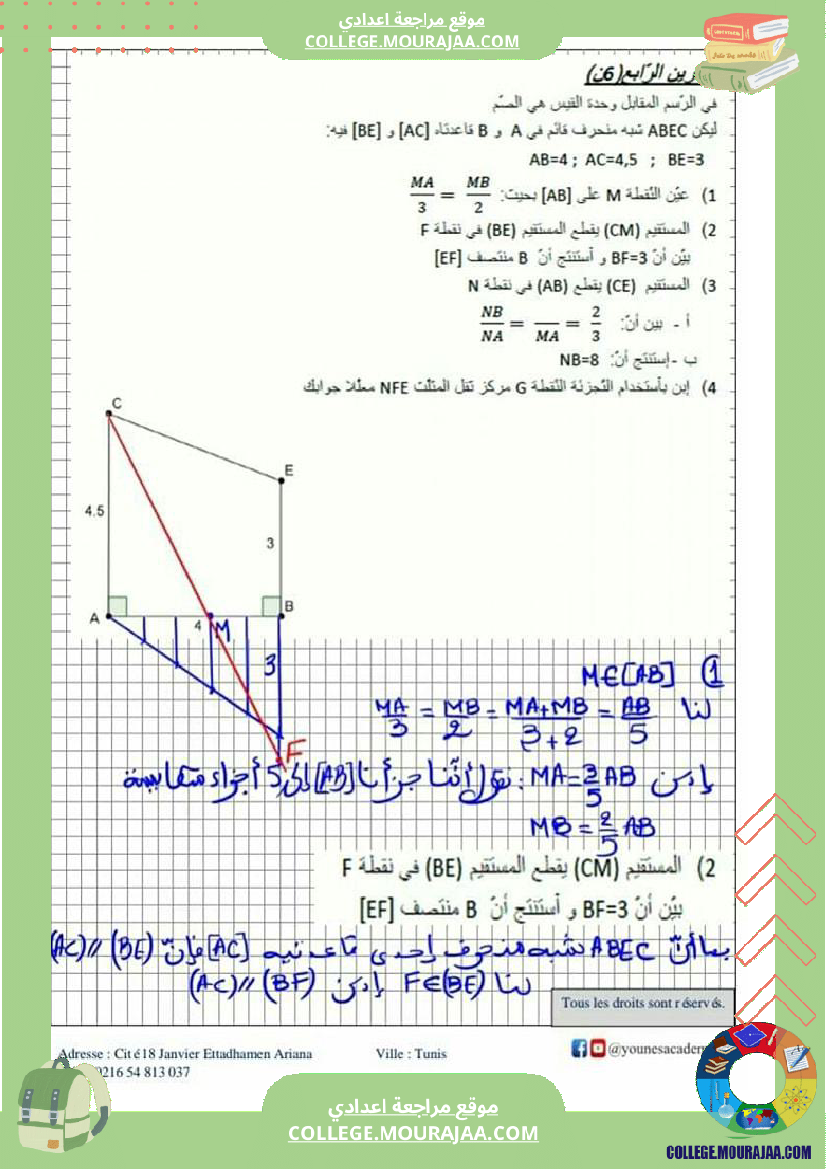 موقع مراجعة اعدادي
COLLEGE.MOURAJAA.COM
رين الرّابع (6ن)
في الرّسم المقابل وحدة القيس هي الصّم
ليكن ABEC شبه منحرف قائم في A و B قاعدتاه [AC] و [BE] فيه:
AB=4 ; AC=4,5 ; BE=3
1) عيّن النّقطة M على [AB] بحيث: MA/3 = MB/2
2) المستقيم (CM) يقطع المستقيم (BE) في نقطة F
بيّن أنّ BF=3 و أستنتج أنّ B منتصف [EF]
3) المستقيم (CE) يقطع (AB) في نقطة N
أ - بين أنّ: NB/NA = /MA = 2/3
ب -إستنتج أنّ: NB=8
4) إبن بأستخدام التّجزئة النّقطة G مركز ثقل المثلّث NFE معلّلا جوابك
C
E
4,5
3
A
4
M
B
3
F
1) M∈[AB]
لنا MA/3 = MB/2 = MA+MB/3+2 = AB/5
إذن MA=3/5 AB : نقول أنّنا جزأنا [AB] إلى 5 أجزاء متقايسة
MB = 2/5 AB
2) المستقيم (CM) يقطع المستقيم (BE) في نقطة F
بيّن أنّ BF=3 و أستنتج أنّ B منتصف [EF]
بما أنّ ABEC شبه منحرف إحدى قاعدتيه [AC] فإنّ (BE) // (AC)
لنا F∈(BE) إذن (AC) // (BF)
Tous les droits sont réservés.
Adresse : Cité 18 Janvier Ettadhamen Ariana
Ville : Tunis
@younesacadem
0216 54 813 037
موقع مراجعة اعدادي
COLLEGE.MOURAJAA.COM
COLLEGE.MOURAJAA.COM